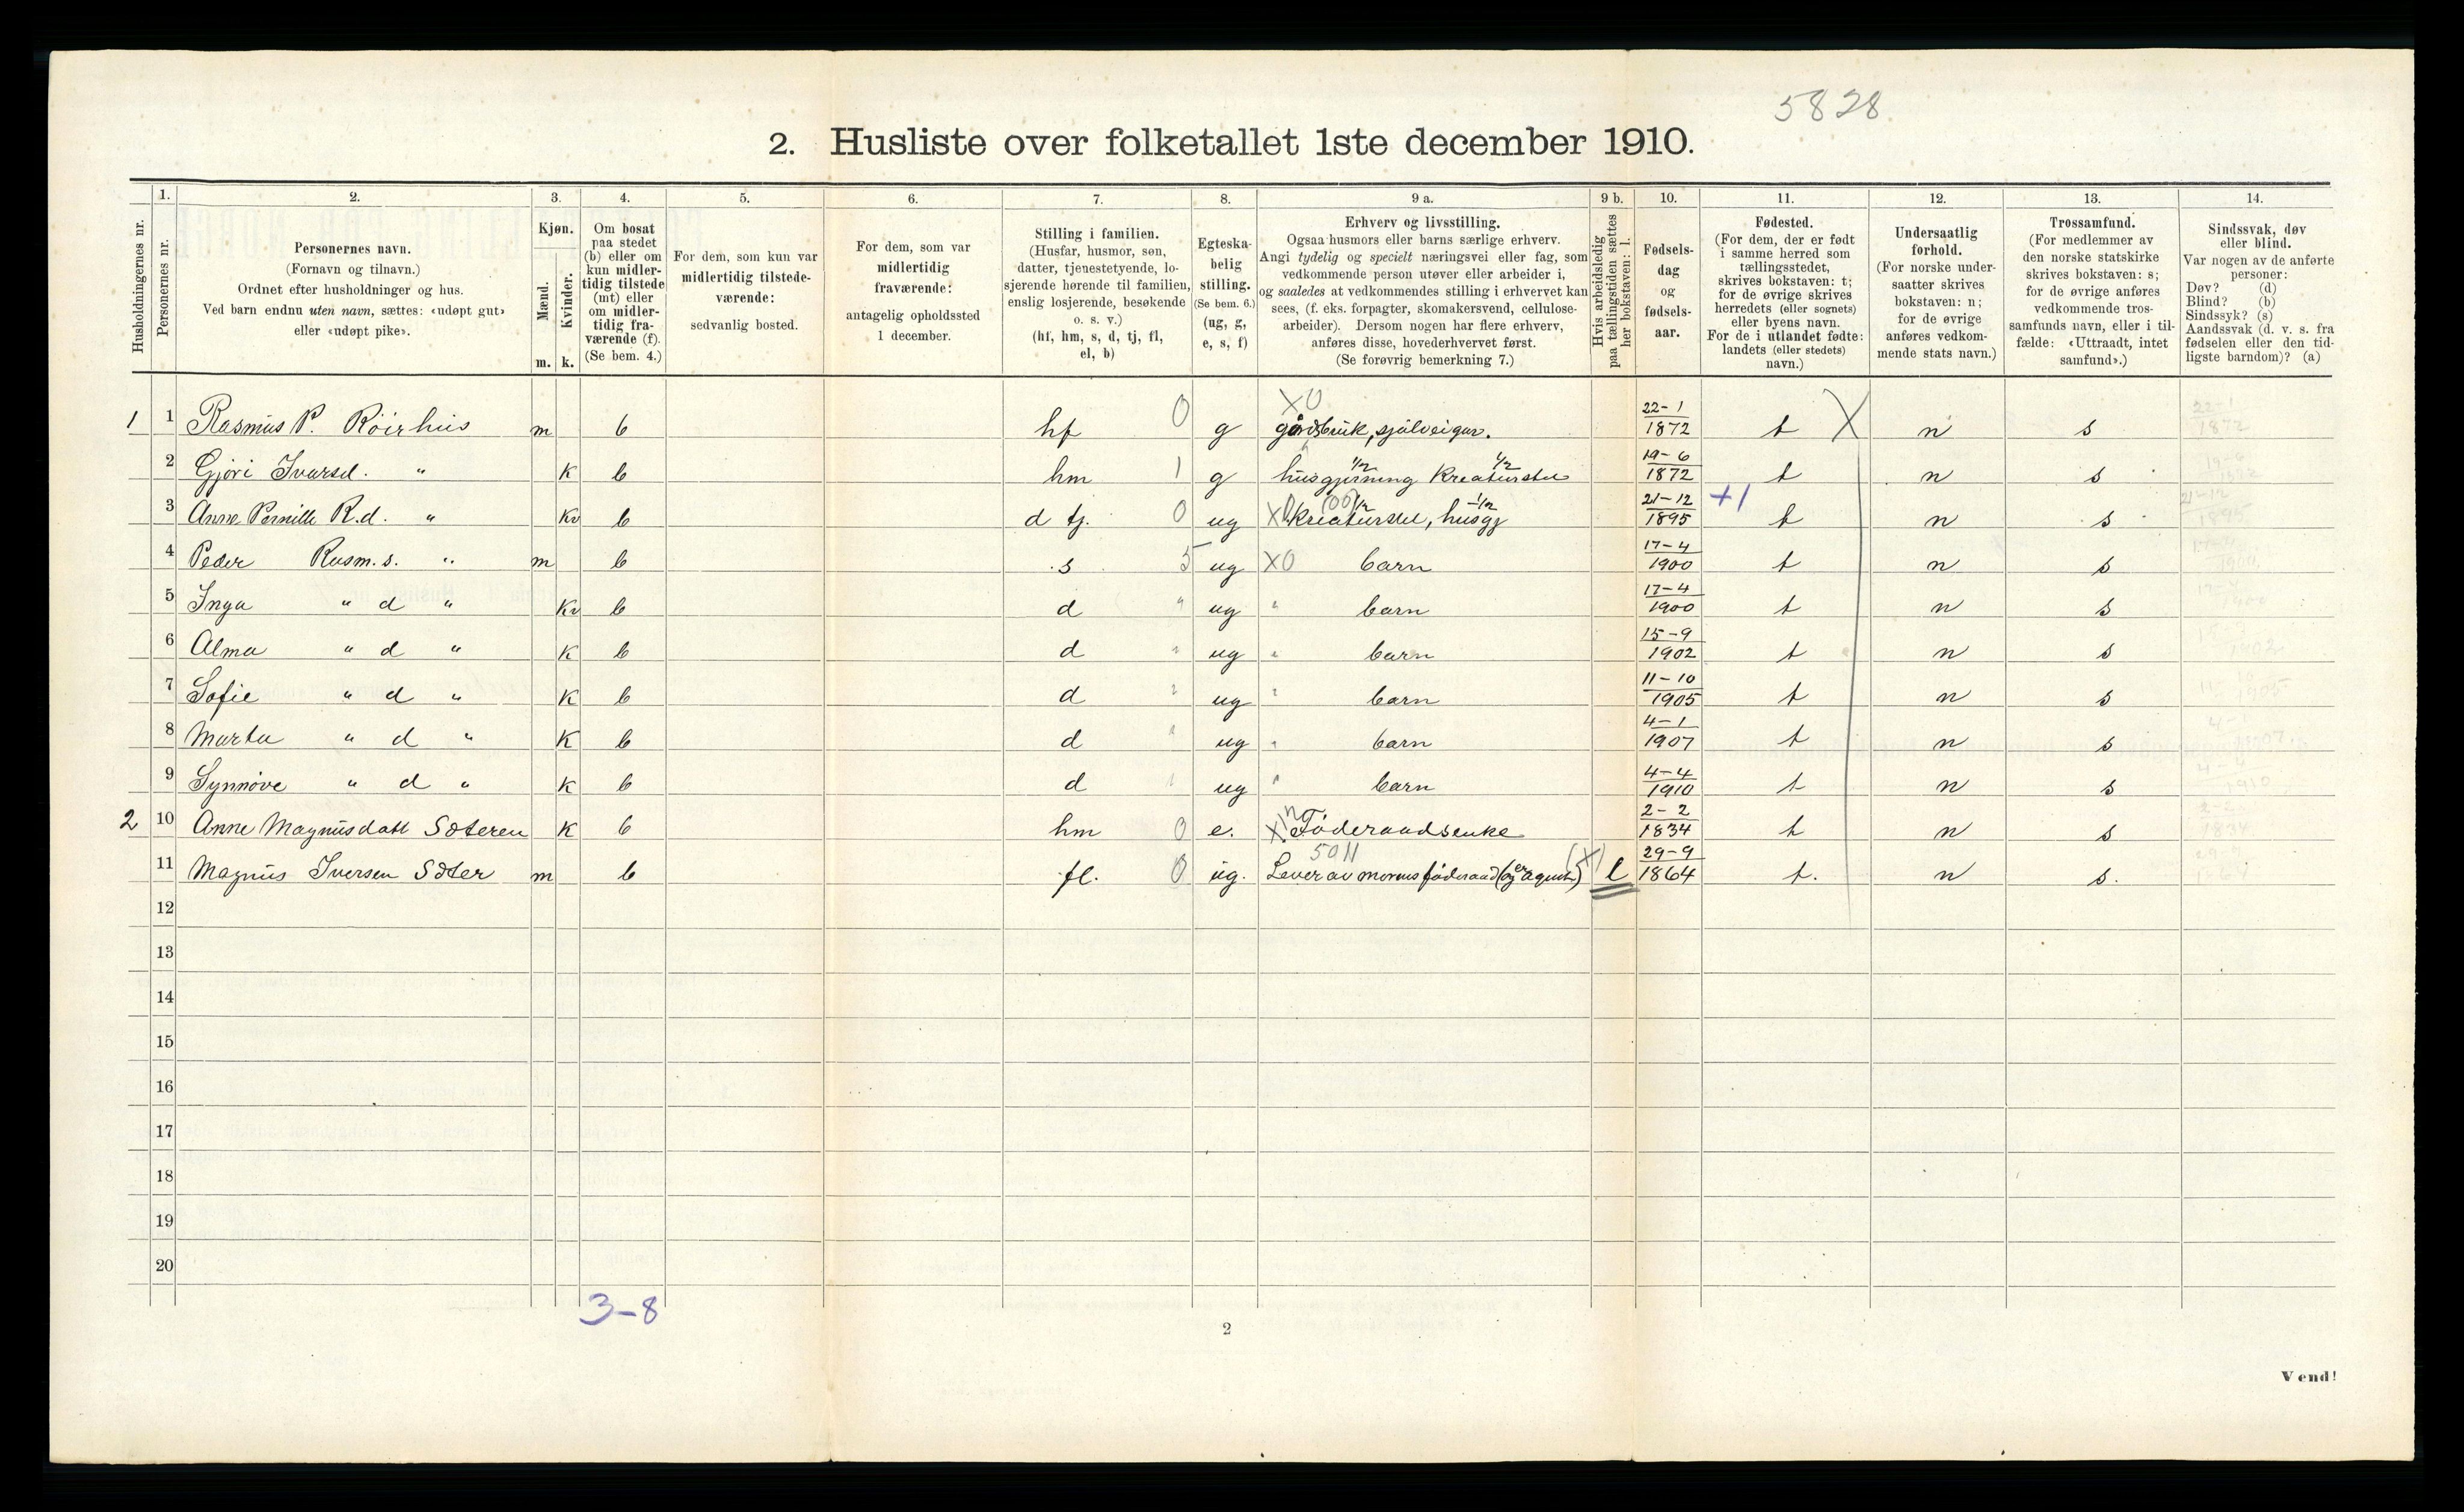 5828
2. Husliste over folketallet 1ste december 1910.
Husholdningernes nr.
1.
Personernes nr.
2.
Personernes navn.
(Fornavn og tilnavn.)
Ordnet efter husholdninger og hus.
Ved barn endnu uten navn, sættes: «udøpt gut»
eller «udøpt pike».
3.
Kjøn.
Mænd.
m.
Kvinder.
k.
4.
Om bosat
paa stedet
(b) eller om
kun midler-
tidig tilstede
(mt) eller
om midler-
tidig fra-
værende (f).
(Se bem. 4.)
5.
For dem, som kun var
midlertidig tilstede-
værende:
sedvanlig bosted.
6.
For dem, som var
midlertidig
fraværende:
antagelig opholdssted
1 december.
7.
Stilling i familien.
(Husfar, husmor, søn,
datter, tjenestetyende, lo-
sjerende hørende til familien,
enslig losjerende, besøkende
o. s. v.)
(hf, hm, s, d, tj, fl,
el, b)
8.
Egteska-
belig
stilling.
(Se bem. 6.)
(ug, g,
e, s, f)
9 a.
Erhverv og livsstilling.
Ogsaa husmors eller barns særlige erhverv.
Angi tydelig og specielt næringsvei eller fag, som
vedkommende person utøver eller arbeider i,
og saaledes at vedkommendes stilling i erhvervet kan
sees, (f. eks. forpagter, skomakersvend, cellulose-
arbeider). Dersom nogen har flere erhverv,
anføres disse, hovederhvervet først.
(Se forøvrig bemerkning 7.)
9 b.
Hvis arbeidsledig
paa tællingstiden sættes
her bokstaven: l.
10.
Fødsels-
dag
og
fødsels-
aar.
11.
Fødested.
(For dem, der er født
i samme herred som
tællingsstedet,
skrives bokstaven: t;
for de øvrige skrives
herredets (eller sognets)
eller byens navn.
For de i utlandet fødte:
landets (eller stedets)
navn.)
12.
Undersaatlig
forhold.
(For norske under-
saatter skrives
bokstaven: n;
for de øvrige
anføres vedkom-
mende stats navn.)
13.
Trossamfund.
(For medlemmer av
den norske statskirke
skrives bokstaven: s;
for de øvrige anføres
vedkommende tros-
samfunds navn, eller i til-
fælde: «Uttraadt, intet
samfund».)
14.
Sindssvak, døv
eller blind.
Var nogen av de anførte
personer:
Døv? (d)
Blind? (b)
Sindssyk? (s)
Aandssvak (d. v. s. fra
fødselen eller den tid-
ligste barndom)? (a)
1 1 Rasmus P. Röirhus m b hf 0 g XO gårdsbruk, sjölveigar. 22-1 1872 t X n s
2 Gjöri Ivarsd. " K b hm 1 g husgjerning 1/2 Kreaturstel 1/2 19-6 1872 t n s
3 Anne Pernille R.d. " Kv b d tj. 0 ug kreaturstel, 1/2 husgj 1/2 21-12 1895 +1 t n s
4 Peder Rasm. s. " m b s 5 ug XO barn 17-4 1900 t n s
5 Inga " d " Kv b d " ug " barn 17-4 1900 t n s
6 Alma " d " K b d " ug " barn 15-9 1902 t n s
7 Sofie " d " K b d " ug " barn 11-10 1905 t n s
8 Marta " d " K b d " ug " barn 4-1 1907 t n s
9 Synnöve " d " K b d " ug " barn 4-4 1910 t n s
2 10 Anne Magnusdatt Söteren K b hm 0 e. X Föderaadsenke 2-2 1834 t n s
11 Magnus Iversen Söter m b fl. 0 ug. 5011 Lever av morens föderaad (og er agent) (X) l 29-9 1864 t. n s.
12
13
14
15
16
17
18
19
20
3-8
2
Vend!